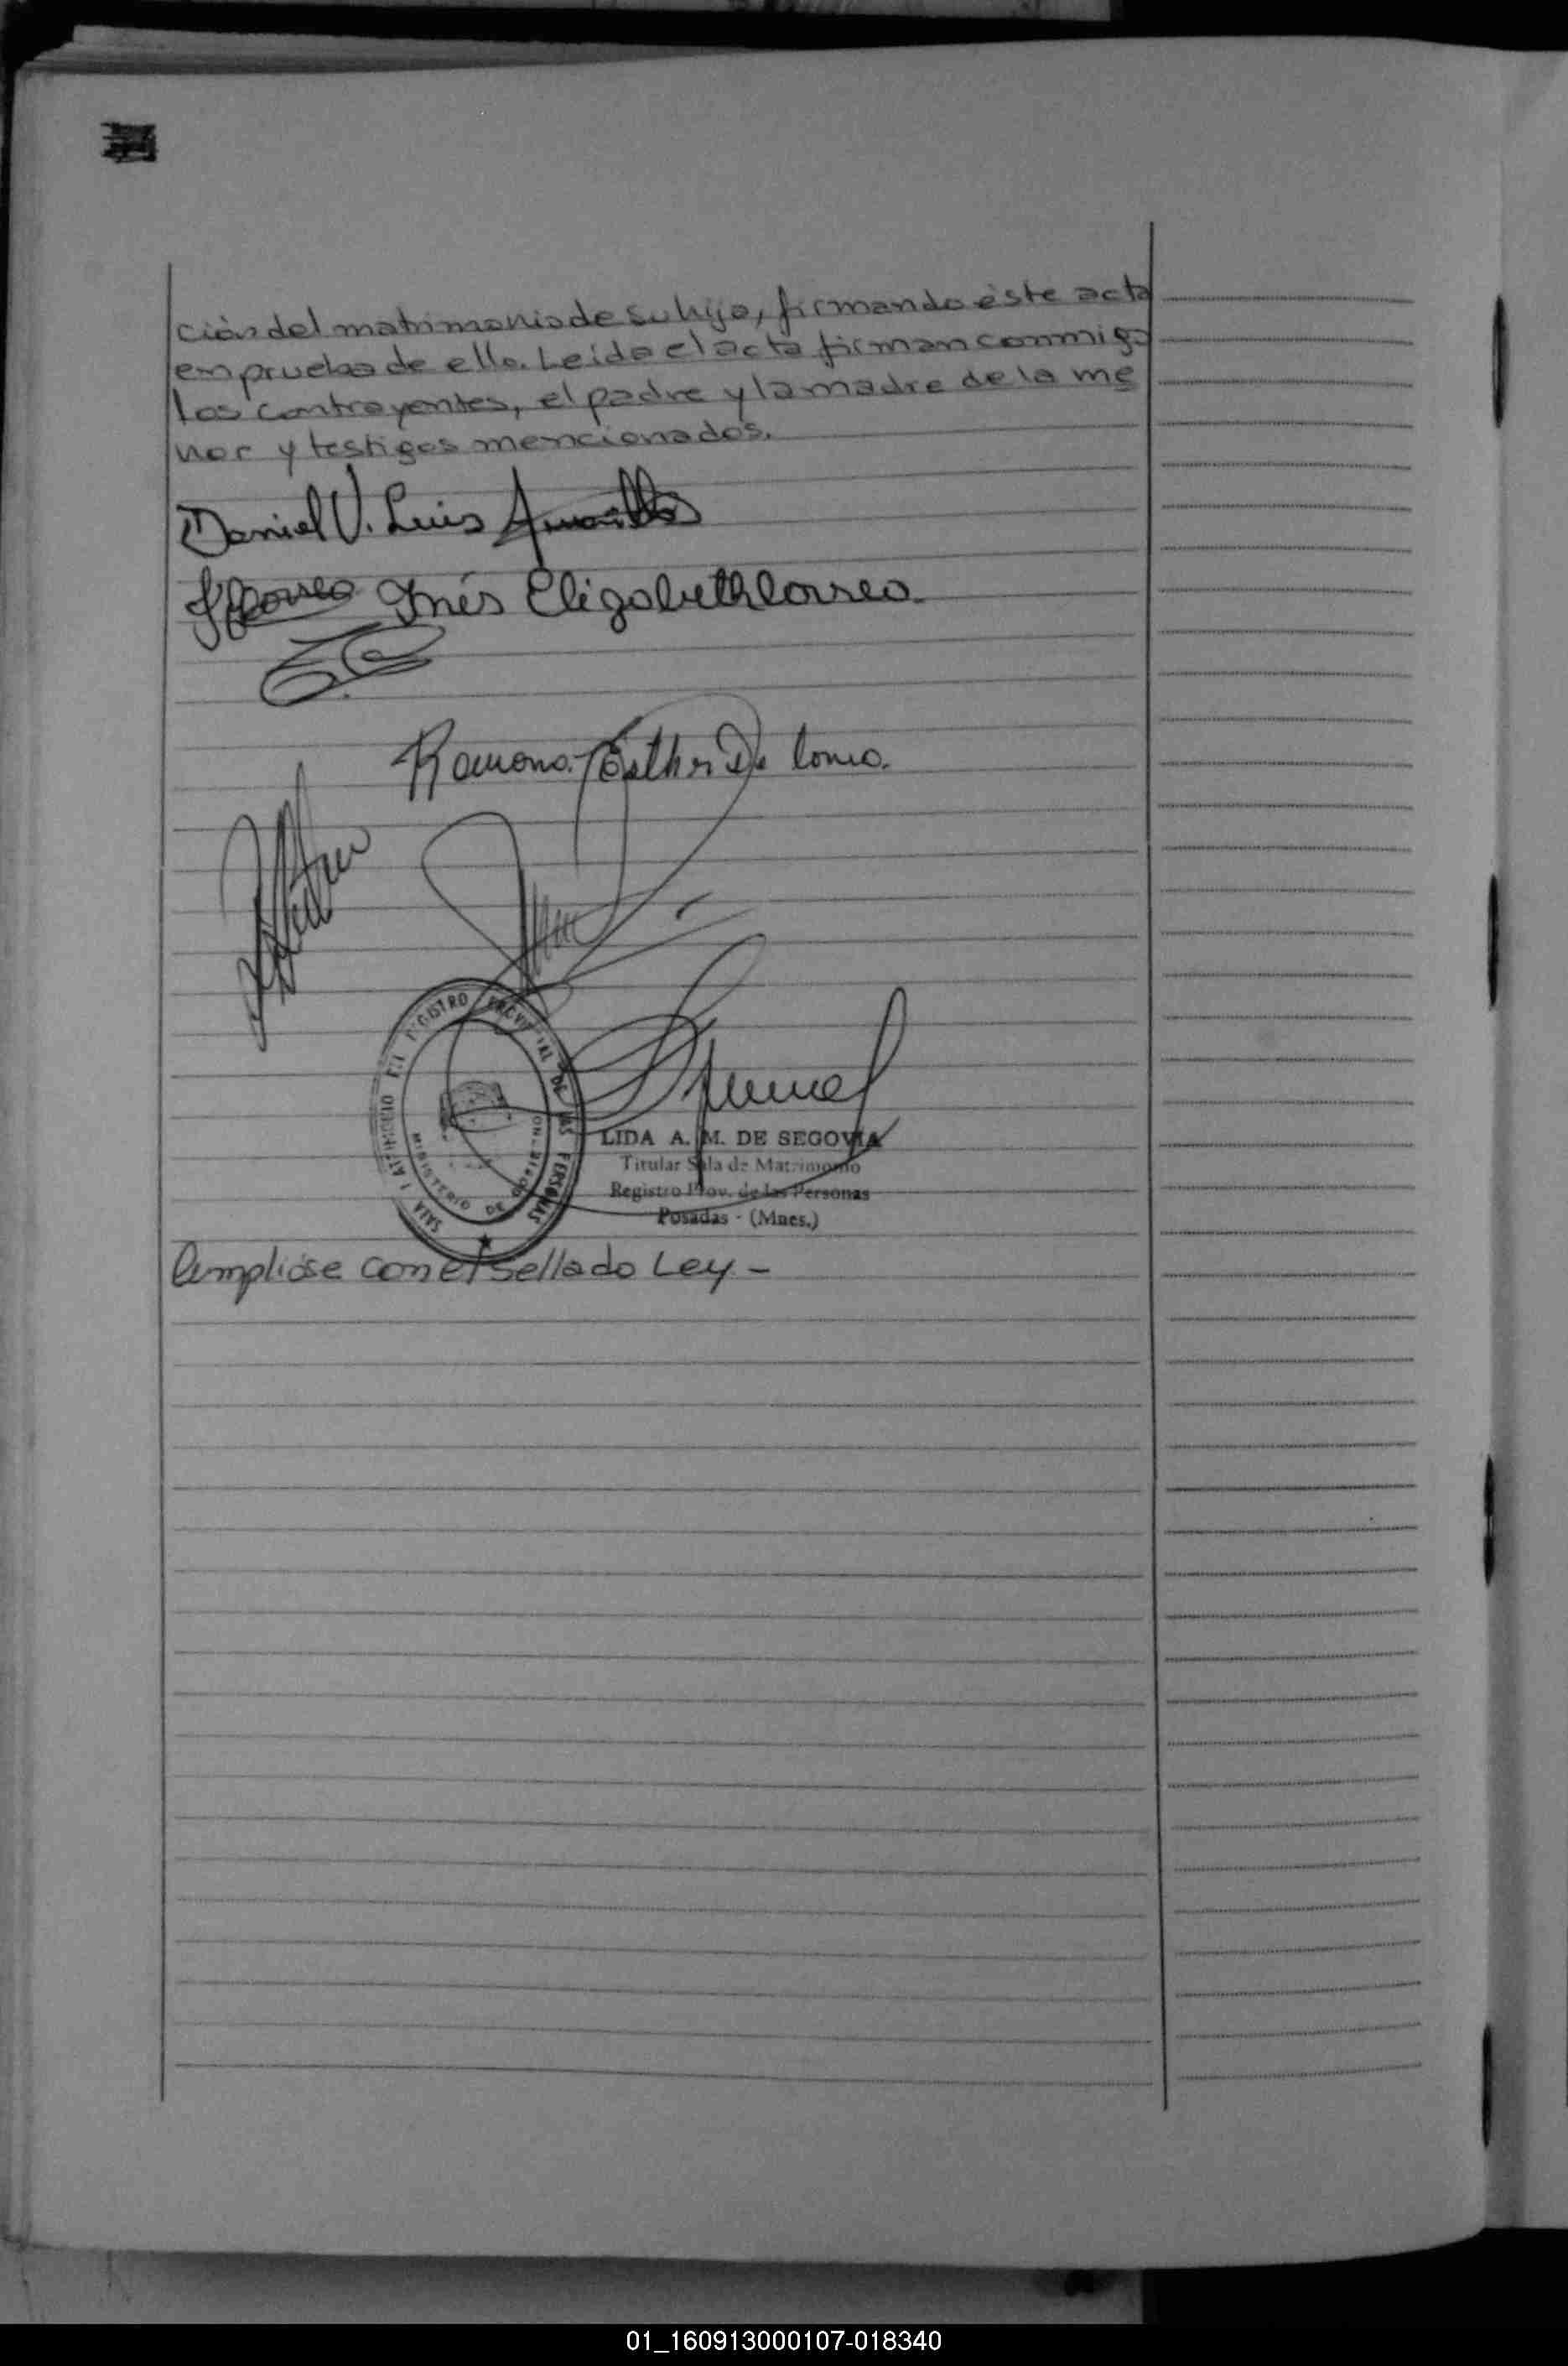 ción del matrimonio de su hija, firmando éste acta
en prueba de ello. Leída el acta firman conmigo
los contrayentes, el padre y la madre de la me
nor y testigos mencionados.
Daniel V. Luis
Inés Elizabeth
Ramona Esther De
SALA I MATRIMONIO DEL REGISTRO PROVINCIAL DE LAS PERSONAS
MINISTERIO DE GOBIERNO
LIDA A. M. DE SEGOVIA
Titular Sala de Matrimonio
Registro Prov. de las Personas
Posadas - (Mnes.)
Cumplióse con el Sellado Ley -
01_160913000107-018340